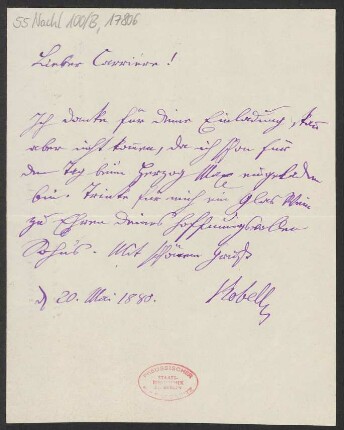 55 Nachl 100/B, 17806
Lieber Carriere!
Ich danke für deine Einladung, kan̅
aber nicht kom̅en, da ich schon für
den Tag beim Herzog Max eingeladen
bin. Trinke für mich ein Glas Wein
zu Ehren deines hoffnungsvollen
Sohns. Mit schönem Gruß
d 20. Mai 1880. Kobell
PREUSSISCHER
STAATS-
BIBLIOTHEK